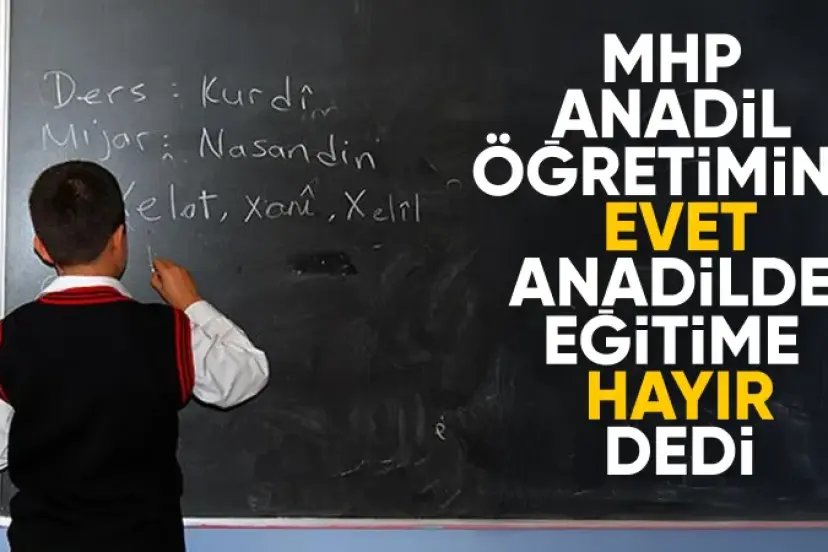 Ders : Kurdî
Mijar : Nasandin
Xelat, Xanî, Xelîl
ê
MHP
ANADİL
ÖĞRETİMİN
EVET
ANADİLDE
EĞİTİME
HAYIR
DEDİ